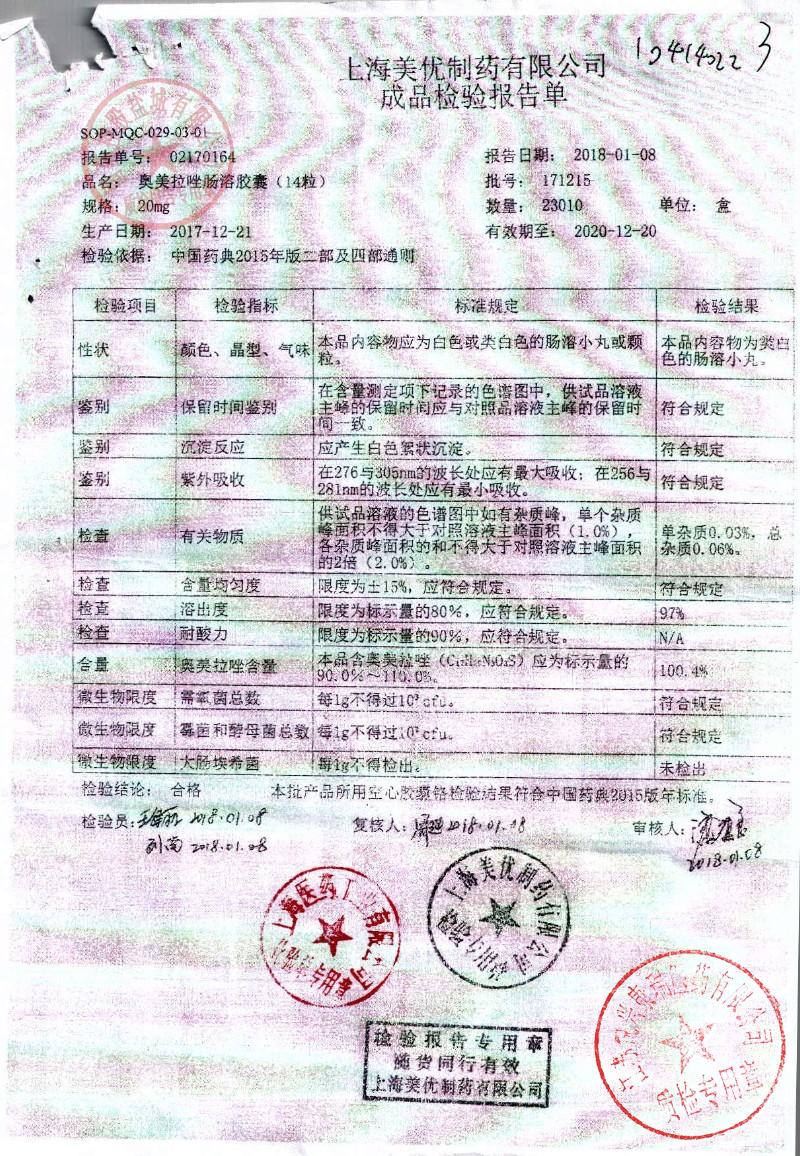 10414022 3
上海美优制药有限公司
成品检验报告单
SOP-MQC-029-03-01
报告单号： 02170164 报告日期： 2018-01-08
品名： 奥美拉唑肠溶胶囊（14粒） 批号： 171215
规格： 20mg 数量： 23010 单位： 盒
生产日期： 2017-12-21 有效期至： 2020-12-20
检验依据： 中国药典2015年版二部及四部通则
检验项目 检验指标 标准规定 检验结果
性状 颜色、晶型、气味 本品内容物应为白色或类白色的肠溶小丸或颗粒。 本品内容物为类白色的肠溶小丸。
鉴别 保留时间鉴别 在含量测定项下记录的色谱图中，供试品溶液主峰的保留时间应与对照品溶液主峰的保留时间一致。 符合规定
鉴别 沉淀反应 应产生白色絮状沉淀。 符合规定
鉴别 紫外吸收 在276与305nm的波长处应有最大吸收；在256与281nm的波长处应有最小吸收。 符合规定
检查 有关物质 供试品溶液的色谱图中如有杂质峰，单个杂质峰面积不得大于对照溶液主峰面积（1.0%），各杂质峰面积的和不得大于对照溶液主峰面积的2倍（2.0%）。 单杂质0.03%，总杂质0.06%。
检查 含量均匀度 限度为±15%，应符合规定。 符合规定
检查 溶出度 限度为标示量的80%，应符合规定。 97%
检查 耐酸力 限度为标示量的90%，应符合规定。 N/A
含量 奥美拉唑含量 本品含奥美拉唑 应为标示量的90.0%～110.0%。 100.4%
微生物限度 需氧菌总数 每1g不得过10³cfu。 符合规定
微生物限度 霉菌和酵母菌总数 每1g不得过10²cfu。 符合规定
微生物限度 大肠埃希菌 每1g不得检出。 未检出
检验结论： 合格 本批产品所用空心胶囊铬检验结果符合中国药典2015版年标准。
检验员： 2018.01.08 复核人： 2018.01.08 审核人：
2018.01.08 2018.01.08
上海医药工业有限公司
质检专用章
上海美优制药有限公司
检验专用章
检验报告专用章
随货同行有效
上海美优制药有限公司
医药有限公司
质检专用章